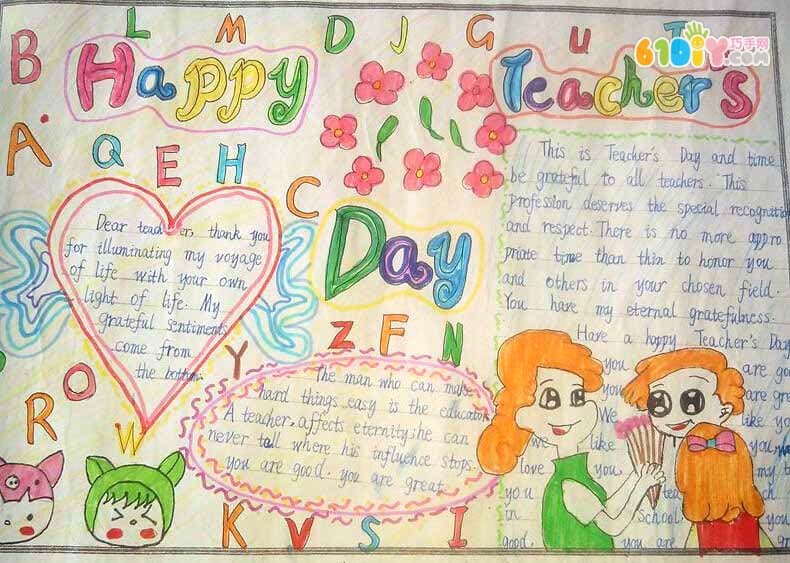 L M D J G U T
B Happy Teacher's
610DIY.com 巧手网
A Q E H C
Day
Dear teachers, thank you
for illuminating my voyage
of life with your own
light of life. My
grateful sentiments
come from
the bottom.
This is Teacher's Day and time
be grateful to all teachers. This
Profession deserves the special recognition
and respect. There is no more appro
priate time than thin to honor you
and others in your chosen field.
You have my eternal gratefulness.
Have a happy Teacher's Day
you are go
you are gre
We like you
we like you we
love you my t
you tea ch
in School. you
good, you are gr
Z F N
Y
O
R W
The man who can make
hard things easy is the educator
A teacher affects eternity: he can
never tall where his influence stops.
you are good. you are great
K V S I